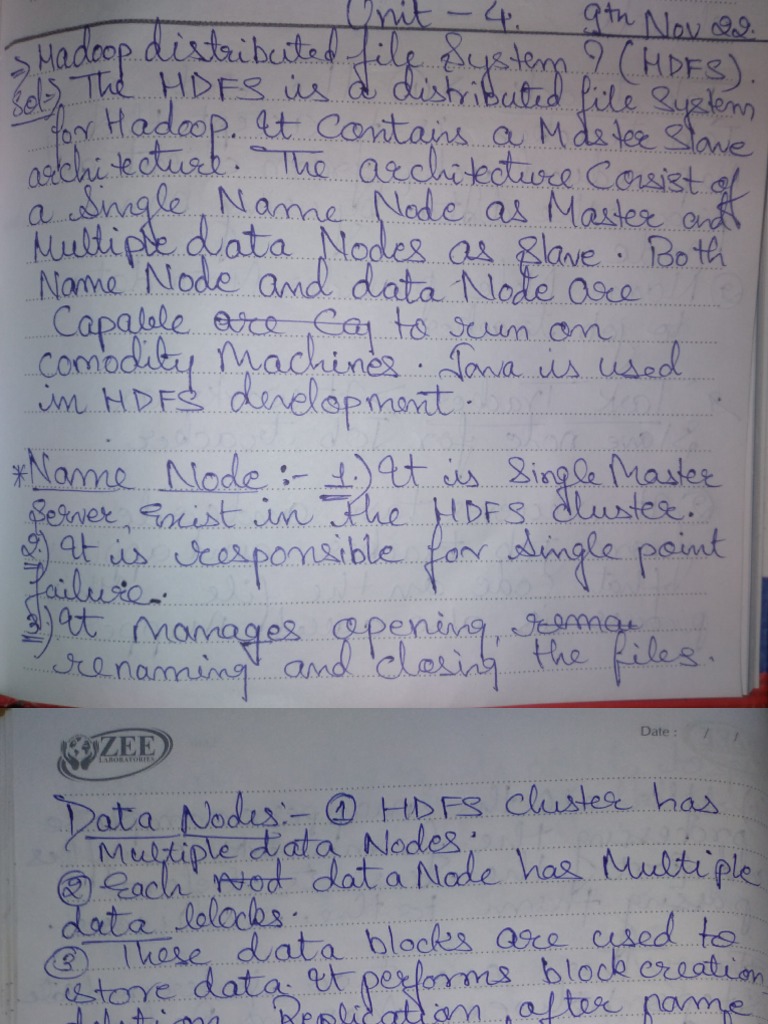 Unit - 4. 9th Nov 22.
=> Hadoop distributed file System ? (HDFS).
Sol:-> The HDFS is a distributed file System
for Hadoop. It Contains a Master Slave
architecture. The architecture Consist of
a Single Name Node as Master and
Multiple data Nodes as Slave. Both
Name Node and data Node are
Capable are Cap to run on
comodity Machines. Java is used
in HDFS development.
*Name Node :- 1.) It is Single Master
Server, Exist in the HDFS cluster.
2.) It is responsible for Single point
failure.
3.) It Manages opening, rema
renaming and closing the files.
ZEE
LABORATORIES
Date : / /
Data Nodes:- ① HDFS Cluster has
Multiple data Nodes.
② Each Nod data Node has Multiple
data blocks.
③ These data blocks are used to
store data. It performs block creation
deletion, Replication, after name